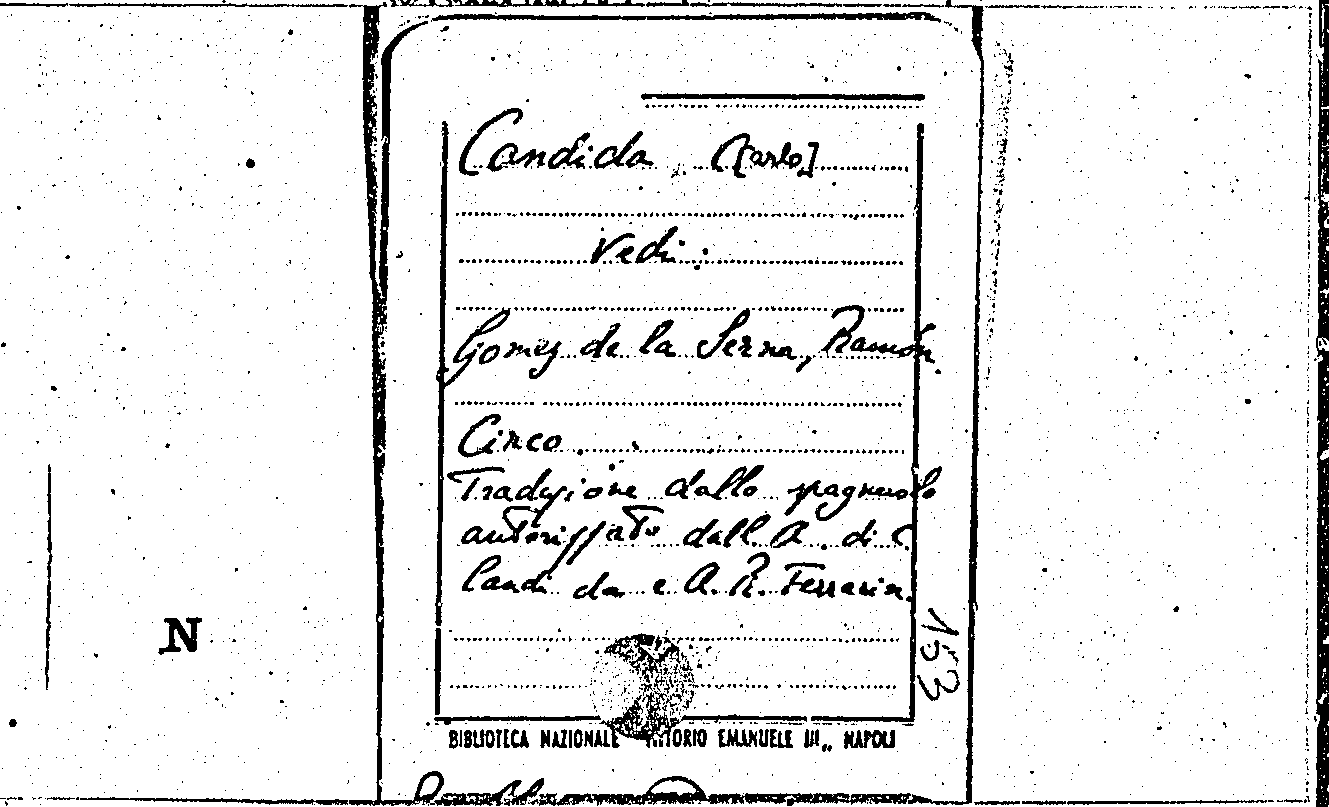 Candida C[arlo]
Vedi:
Gomez de la Serna, Ramón.
Circo.
Traduzione dallo spagnuolo
autorizzata dall'A. di C.
Candida e A. R. Ferrarin.
153
N
BIBLIOTECA NAZIONALE VITTORIO EMANUELE III„ NAPOLI